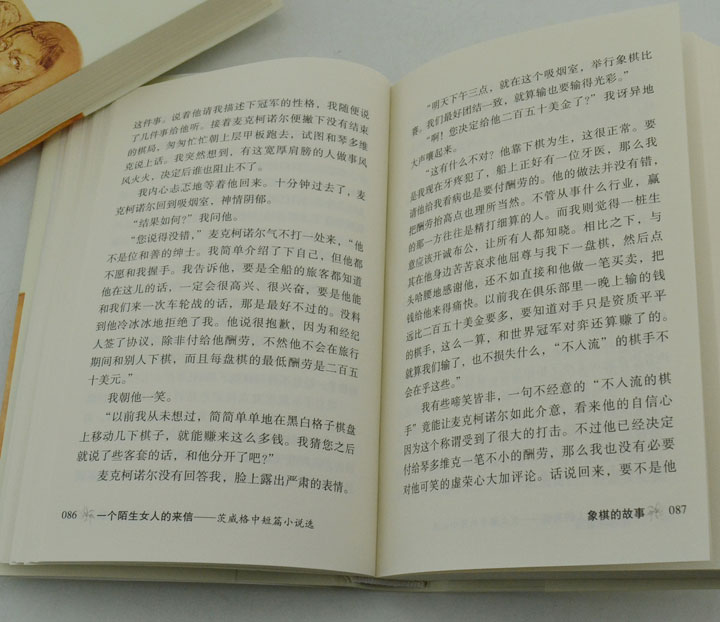 这件事。说着他请我描述下冠军的性格，我随便说
了几件事给他听。接着麦克柯诺尔便撇下没有结束
的棋局，匆匆忙忙朝上层甲板跑去，试图和琴多维
克说上话。我突然想到，有这宽厚肩膀的人做事风
风火火，决定后谁也阻止不了。
我内心忐忑地等着他回来。十分钟过去了，麦
克柯诺尔回到吸烟室，神情阴郁。
“结果如何？”我问他。
“您说得没错，”麦克柯诺尔气不打一处来，“他
不是位和善的绅士。我简单介绍了下自己，但他都
不愿和我握手。我告诉他，要是全船的旅客都知道
他在这儿的话，一定会很高兴、很兴奋，要是他能
和我们来一次车轮战的话，那是最好不过的。没料
到他冷冰冰地拒绝了我。他说很抱歉，因为和经纪
人签了协议，除非付给他酬劳，不然他不会在旅行
期间和别人下棋，而且每盘棋的最低酬劳是二百五
十美元。”
我朝他一笑。
“以前我从未想过，简简单单地在黑白格子棋盘
上移动几下棋子，就能赚来这么多钱。我猜您之后
就说了些客套的话，和他分开了吧？”
麦克柯诺尔没有回答我，脸上露出严肃的表情。
086 一个陌生女人的来信——茨威格中短篇小说选
“明天下午三点，就在这个吸烟室，举行象棋比
赛。我们最好团结一致，就算输也要输得光彩。”
“啊！您决定给他二百五十美金了？”我讶异地
大声嚷起来。
“这有什么不对？他靠下棋为生，这很正常。要
是我现在牙疼犯了，船上正好有一位牙医，那么我
请他给我看病也是要付酬劳的。他的做法并没有错，
把酬劳抬高点也理所当然。不管从事什么行业，赢
的那一方往往是精打细算的人。而我则觉得一桩生
意应该开诚布公，让所有人都知晓。相比之下，与
其在他身边苦苦哀求他屈尊与我下一盘棋，然后点
头哈腰地感谢他，还不如直接和他做一笔买卖，把
钱给他来得痛快。以前我在俱乐部里一晚上输的钱
远比二百五十美金要多，要知道对手只是资质平平
的棋手，这么一算，和世界冠军对弈还算赚了的。
就算我们输了，也不损失什么，“不入流”的棋手不
会在乎这些。”
我有些啼笑皆非，一句不经意的“不入流的棋
手”竟能让麦克柯诺尔如此介意，看来他的自信心
因为这个称谓受到了很大的打击。不过他已经决定
付给琴多维克一笔不小的酬劳，那么我也没有必要
对他可笑的虚荣心大加评论。话说回来，要不是他
象棋的故事 087